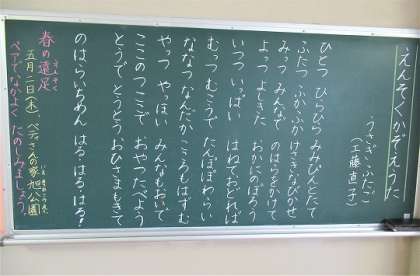 えんそくかぞえうた
うさぎ・ふたご
(工藤直子)
ひとつ ひらひら みみぴんとたて
ふたつ ふかふか けさきなびかせ
みっつ みんなで のはらをかけて
よっつ よじきた おかにのぼろう
いつつ いっぱい はねておどれば
むっつ むこうで たんぽぽわらい
ななつ なんだか こころもはずむ
やっつ やっほい みんなもおいで
ここのつ ここで おやつたべよう
とうで とうとう おひさまもきて
のはらいちめん はる はる はる!
春の遠足
五月二日(木) ペディさんの家 旭公園
ペアで なかよく たのしみましょう。